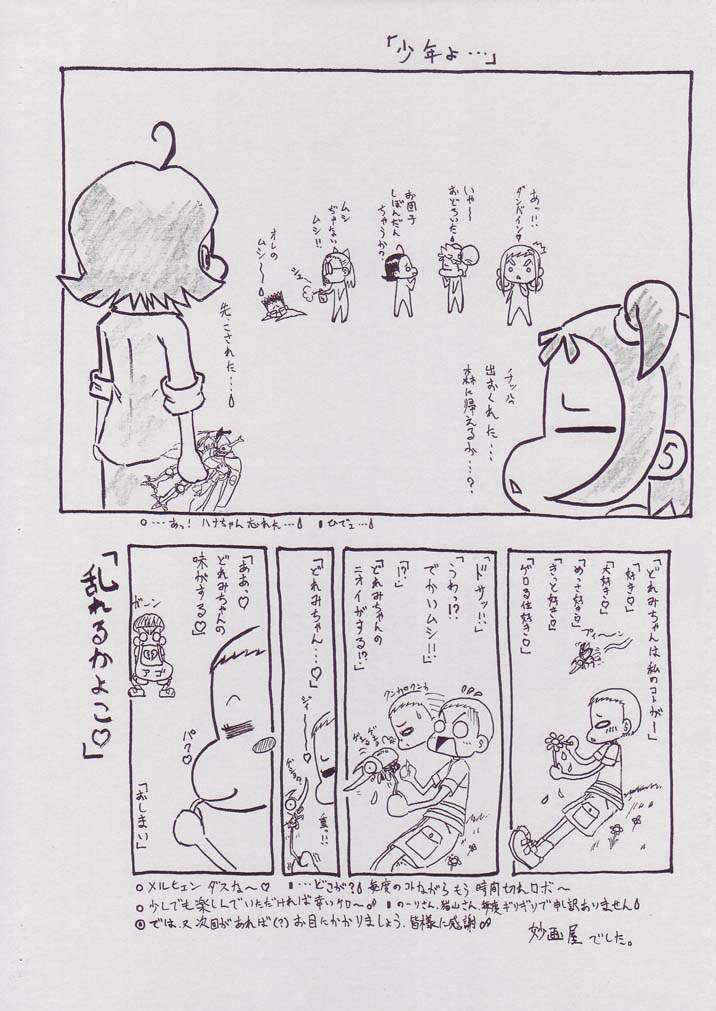 「少年よ…」
あっ!!、
ダンバイン
いや〜
おどろいた
お団子
しぼんだん
ちゃうか?
ムシ
ぢゃない
ムシ!!
オレの
ムシ〜〜
先、こされた…
出おくれた…
森に帰えるか…?
…あっ!ハナちゃん忘れた…
ひでェ…
「どれみちゃんは私のコトがー」
「好き♡」
「大好き♡」
「めっさ好き♡」
「きっと好き♡」
「ゲロる位好き♡」
プィ〜ン
「ドサッ!!」
「うわっ!?
でかいムシ!!」
「!?」
「どれみちゃんの
ニオイがする!?」
クンカクンカ
「どれみちゃん…♡」
ジィー
「ああ♡
どれみちゃんの
味がする♡」
ガーン
アゴ
パク♡
「おしまい」
「乱れるかよこ♡」
○メルヒェンダスな〜♡
…どこが?毎度のコトながらもう時間切れロボ〜
○少しでも楽しんでいただければ幸いケロ〜
のーりさん、猫山さん、毎度ギリギリで申訳ありません
◎では、又次回があれば(?)お目にかかりましょう、皆様に感謝
妙画屋でした。